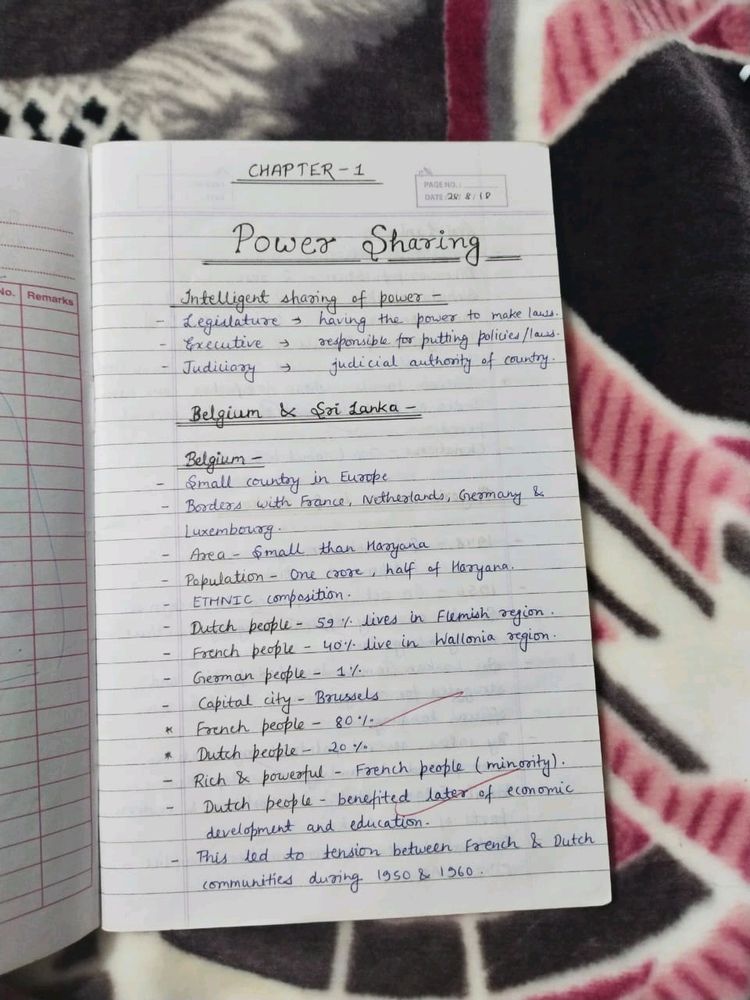 CHAPTER-1
PAGE NO.:
DATE: 28/8/18
Power Sharing
No. Remarks
Intelligent sharing of power -
- Legislature → having the power to make laws.
- Executive → responsible for putting policies/laws.
- Judiciary → judicial authority of country.
Belgium & Sri Lanka -
Belgium -
- Small country in Europe
- Borders with France, Netherlands, Germany &
Luxembourg.
- Area - Small than Haryana
- Population - One crore, half of Haryana.
- ETHNIC composition.
- Dutch people - 59% lives in Flemish region.
- French people - 40% live in Wallonia region.
- German people - 1%.
- Capital city - Brussels
* French people - 80%.
* Dutch people - 20%.
- Rich & powerful - French people (minority).
- Dutch people - benefited later of economic
development and education.
- This led to tension between French & Dutch
communities during 1950 & 1960.